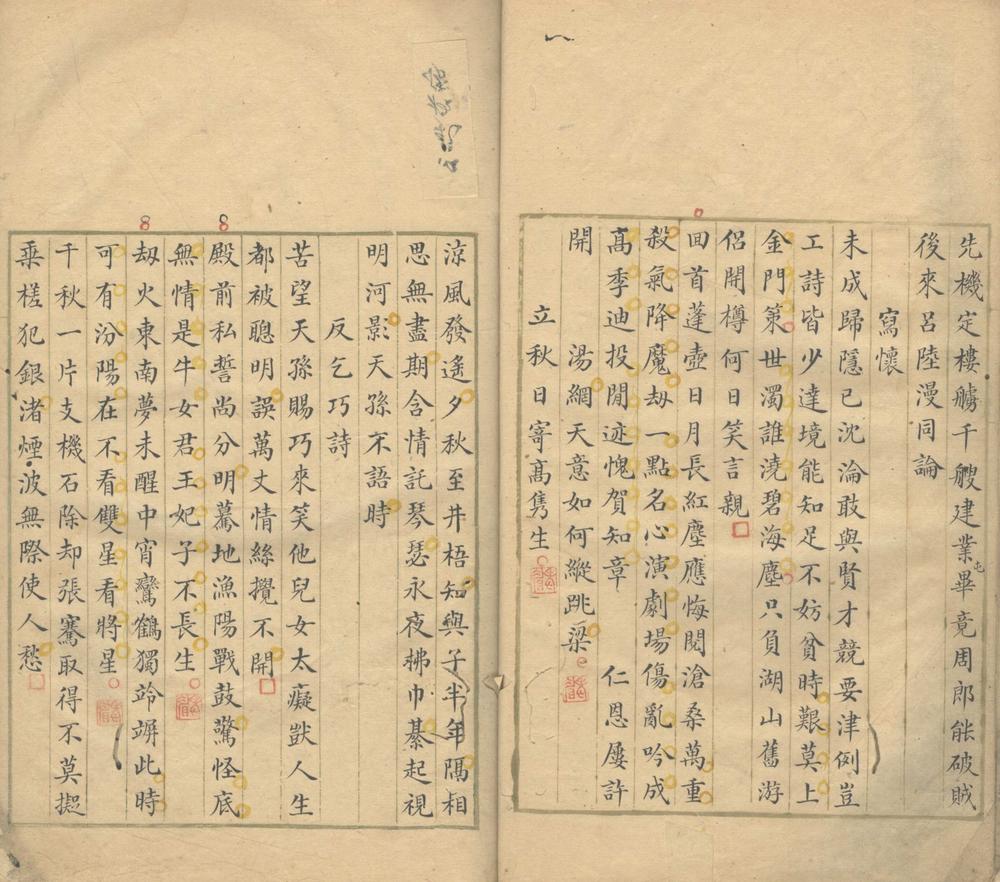 先機定樓艣千艘建業屯畢竟周郎能破賊
後來呂陸漫同論
寫懷
未成歸隱已沈淪敢與賢才競要津例豈
工詩皆少達境能知足不妨貧時艱莫上
金門策世濁誰澆碧海塵只負湖山舊游
侶開樽何日笑言親
回首蓬壺日月長紅塵應悔閱滄桑萬重
殺氣降魔劫一點名心演劇場傷亂吟成
高季迪投閒迹愧賀知章仁恩屢許
開湯網天意如何縱跳梁
立秋日寄高雋生
涼風發遙夕秋至井梧知與子半年隔相
思無盡期含情託琴瑟永夜拂巾綦起視
明河影天孫不語時
反乞巧詩
苦望天孫賜巧來笑他兒女太癡獃人生
都被聰明誤萬丈情絲攪不開
殿前私誓尚分明驀地漁陽戰鼓驚怪底
無情是牛女君王妃子不長生
劫火東南夢未醒中宵鸞鶴獨竛竮此時
可有汾陽在不看雙星看將星
千秋一片支機石除却張騫取得不莫擬
乘槎犯銀渚煙波無際使人愁